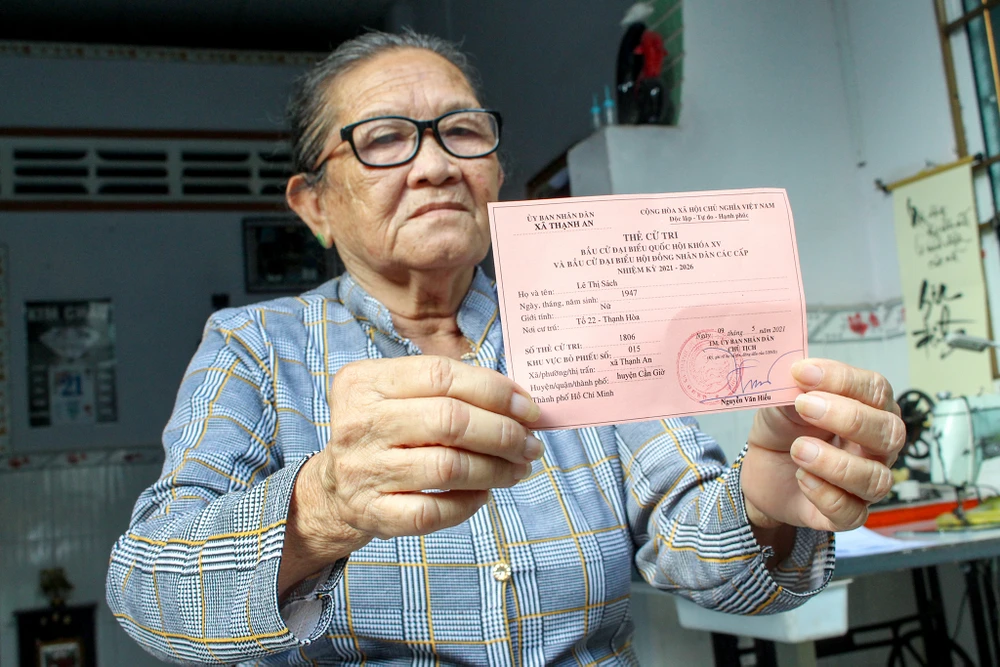 ỦY BAN NHÂN DÂN
XÃ THẠNH AN
CỘNG HÒA XÃ HỘI CHỦ NGHĨA VIỆT NAM
Độc lập - Tự do - Hạnh phúc
THẺ CỬ TRI
BẦU CỬ ĐẠI BIỂU QUỐC HỘI KHÓA XV
VÀ BẦU CỬ ĐẠI BIỂU HỘI ĐỒNG NHÂN DÂN CÁC CẤP
NHIỆM KỲ 2021 - 2026
Họ và tên: Lê Thị Sách
Ngày, tháng, năm sinh: 1947
Giới tính: Nữ
Nơi cư trú: Tổ 22 - Thạnh Hòa
SỐ THẺ CỬ TRI: 1806
KHU VỰC BỎ PHIẾU SỐ: 015
Xã/phường/thị trấn: xã Thạnh An
Huyện/quận/thành phố: huyện Cần Giờ
Thành phố Hồ Chí Minh
Ngày 09 tháng 5 năm 2021
TM. ỦY BAN NHÂN DÂN
CHỦ TỊCH
Nguyễn Văn Hiếu
21